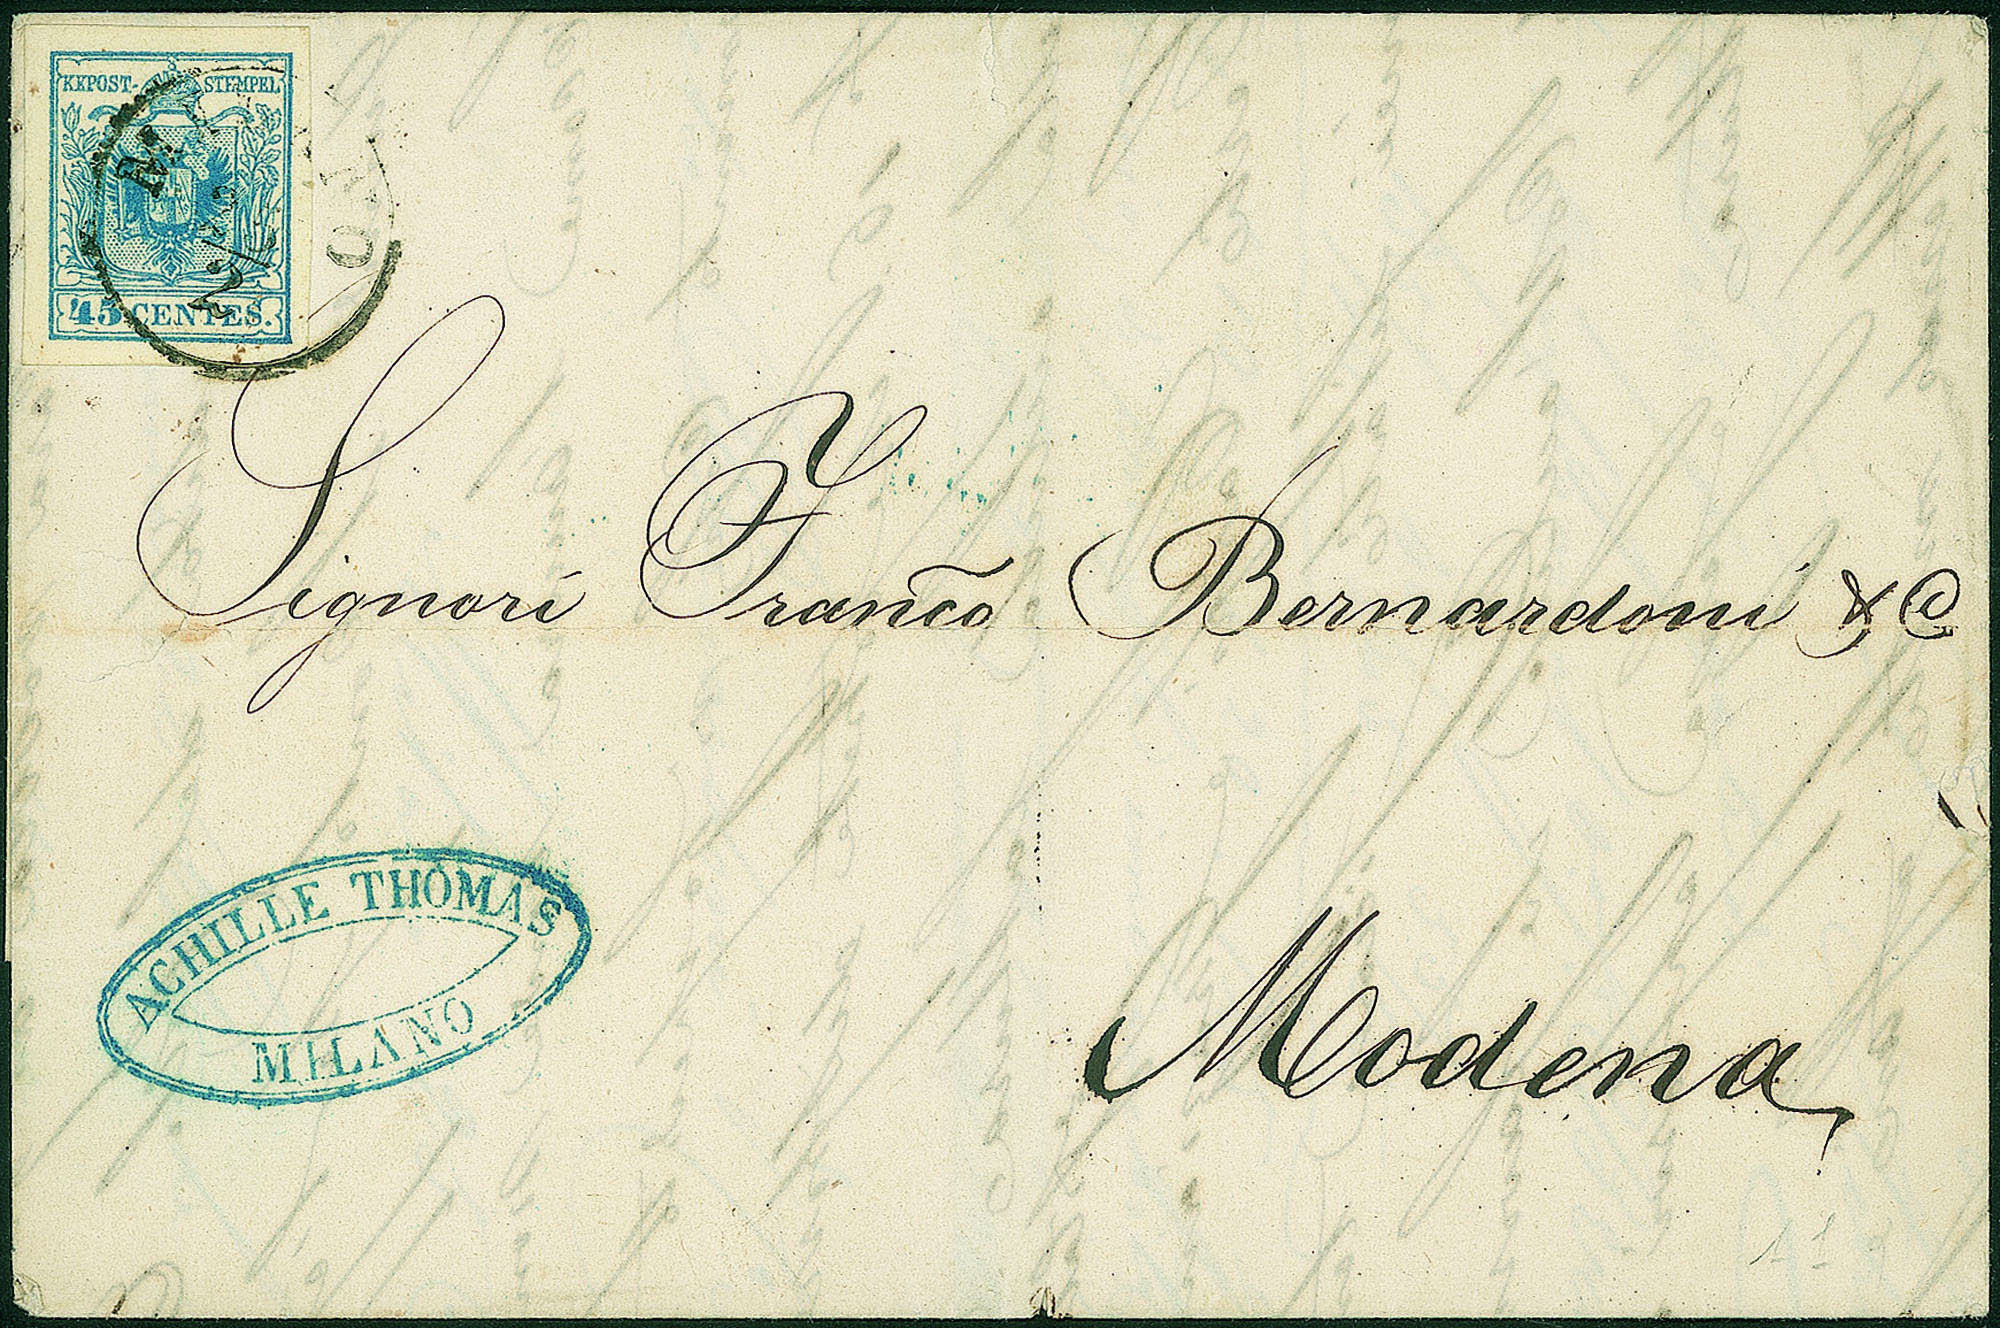 KKPOST-STEMPEL
MILANO
45 CENTES.
Signori Franco Bernardoni & C
ACHILLE THOMAS
MILANO
Modena